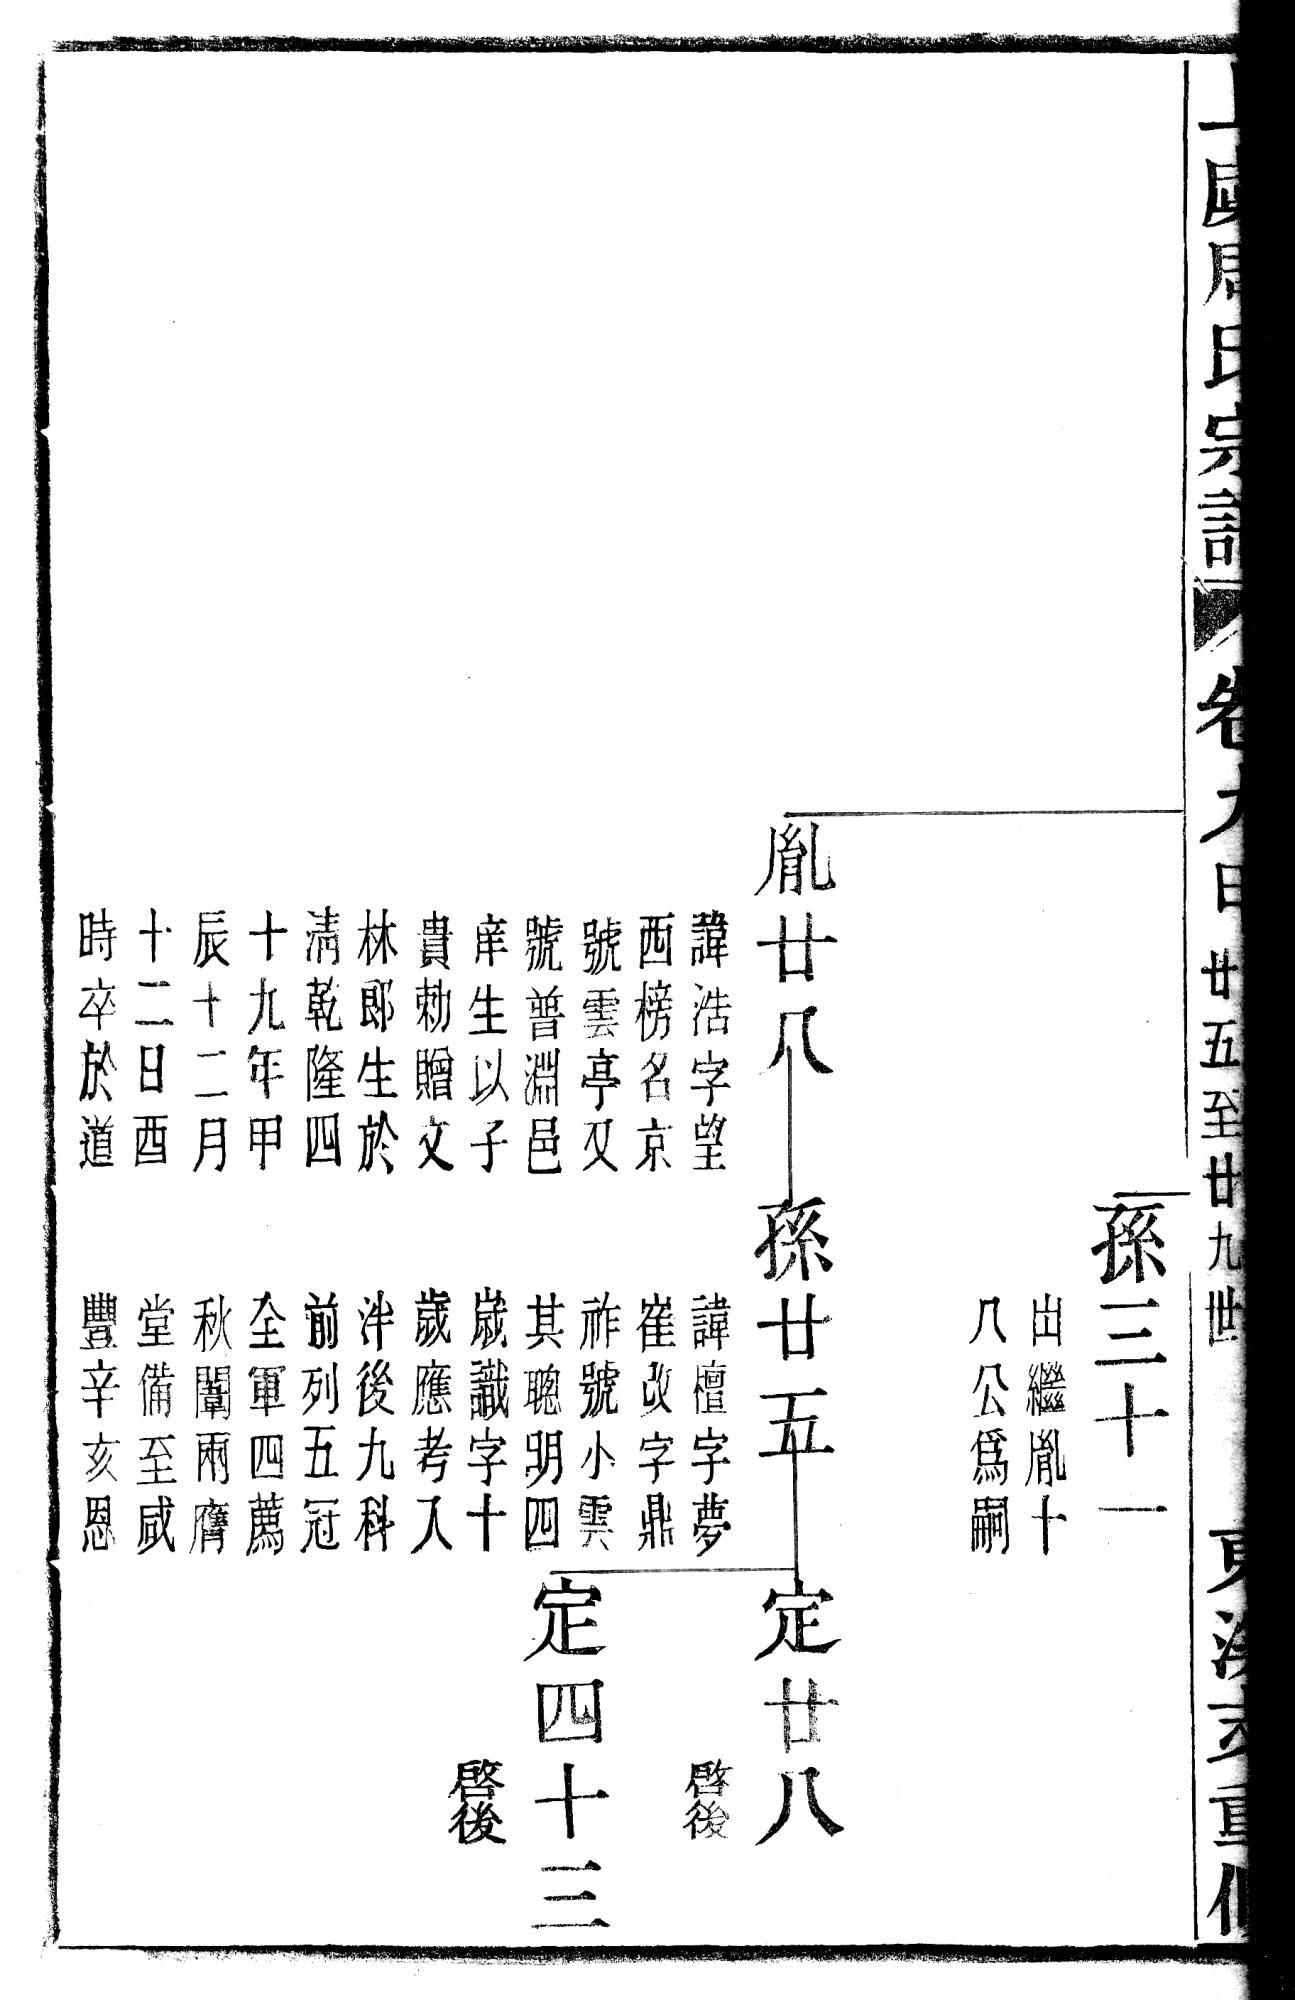 周氏宗譜
卷九
廿五至廿九世
重修
孫三十一
出繼胤十
八公爲嗣
胤廿八
諱浩字望
西榜名京
號雲亭又
號普淵邑
庠生以子
貴勅贈文
林郎生於
清乾隆四
十九年甲
辰十二月
十二日酉
時卒於道
孫廿五
諱檀字夢
崔改字鼎
祚號小雲
其聰明四
歲識字十
歲應考入
泮後九科
前列五冠
全軍四薦
秋闈兩膺
堂備至咸
豐辛亥恩
定廿八
啓後
定四十三
啓後